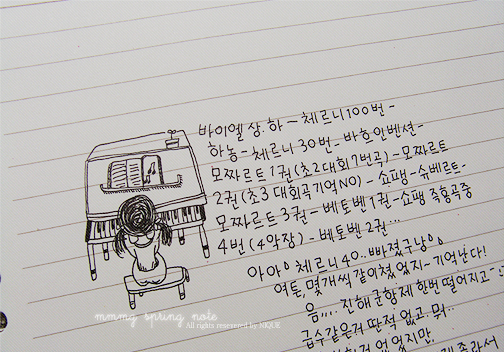 바이엘 상.하 ~ 체르니100번 -
하농 - 체르니 30번 - 바흐인벤션 -
모짜르트 1권(초2대회7번곡) - 모짜르트
2권(초3 대회곡기억NO) - 쇼팽 - 슈베르트 -
모짜르트 3권 - 베토벤 1권 - 쇼팽 즉흥곡중
4번(4악장) - 베토벤 2권...
아아 체르니40.. 빠졌구낭
여튼, 몇개씩 같이쳤었지~ 기억난다!
음,... 진해 군항제 한번 떨어지고
급수같은거 딴적 없고 뭐..
없었지만,
mmmg spring note
All rights reserved by NIQUE